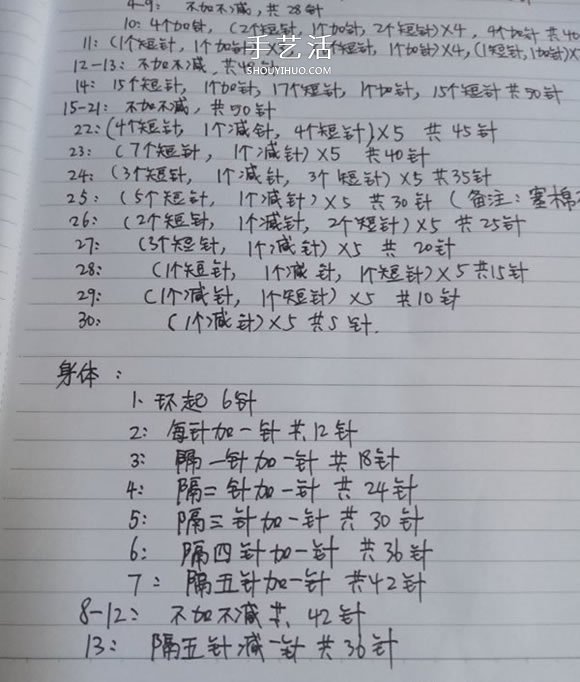 4-9: 不加不减，共28针
10: 4个加针，(2个短针，1个加针，2个短针)×4，4个加针 共40
11: (1个短针，1个加针)×  个短针，1个加针)×4，(1短针，1加针)×
手艺活
SHOUYIHUO.COM
12-13: 不加不减，共48针
14: 15个短针，1个加针，17个短针，1个加针，15个短针 共50针
15-21: 不加不减，共50针
22: (4个短针，1个减针，4个短针)×5 共45针
23: (7个短针，1个减针)×5 共40针
24: (3个短针，1个减针，3个短针)×5 共35针
25: (5个短针，1个减针)×5 共30针 (备注：塞棉
26: (2个短针，1个减针，2个短针)×5 共25针
27: (3个短针，1个减针)×5 共20针
28: (1个短针，1个减针，1个短针)×5 共15针
29: (1个减针，1个短针)×5 共10针
30: (1个减针)×5 共5针.
身体：
1. 环起6针
2: 每针加一针 共12针
3: 隔一针加一针 共18针
4: 隔二针加一针 共24针
5: 隔三针加一针 共30针
6: 隔四针加一针 共36针
7: 隔五针加一针 共42针
8-12: 不加不减共 42针
13: 隔五针减一针 共36针